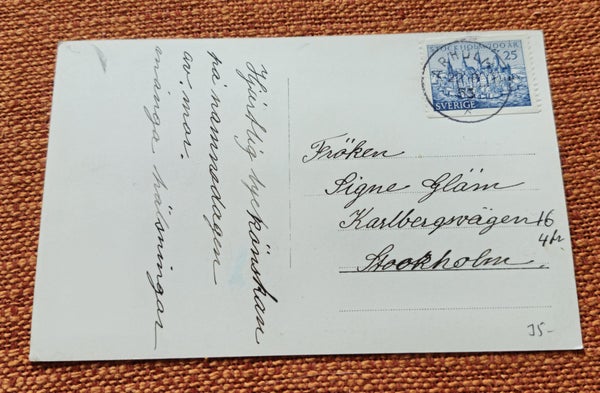 Hjärtlig lyckönskan
på namnsdagen
av: mor.
många hälsningar
STOCKHOLM 700 ÅR
25
SVERIGE
53
Fröken
Signe Gläm
Karlbergsvägen 16
4 tr
Stockholm.
35-